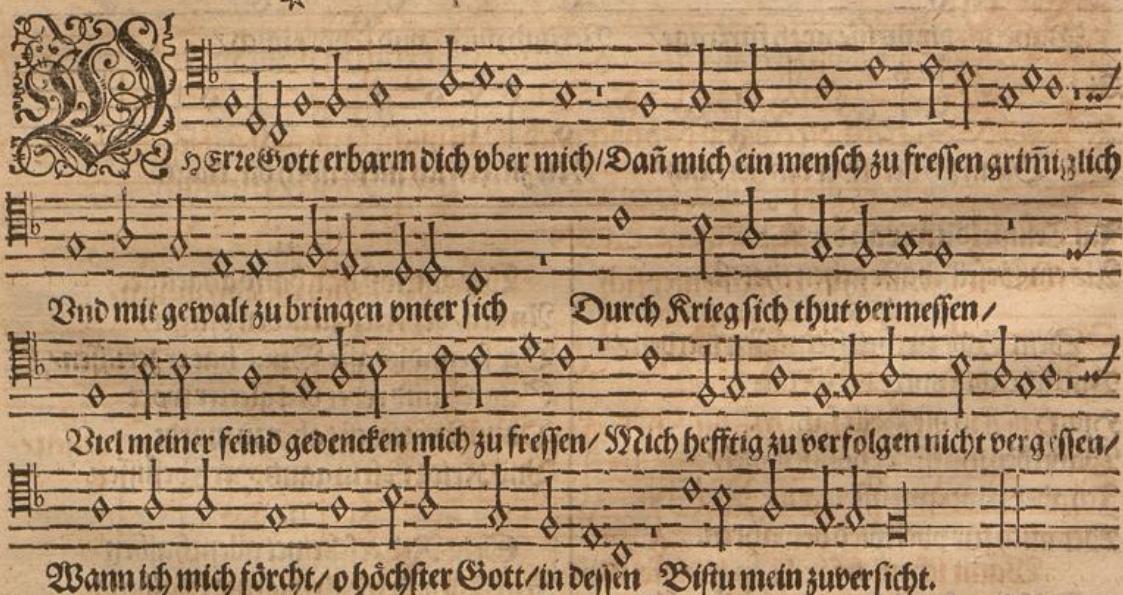 O HErre Gott erbarm dich vber mich/Dañ mich ein mensch zu fressen grim̃iglich
Vnd mit gewalt zu bringen vnter sich Durch Krieg sich thut vermessen/
Viel meiner feind gedencken mich zu fressen/ Mich hefftig zu verfolgen nicht vergessen/
Wann ich mich förcht/ o höchster Gott/ in dessen Bistu mein zuversicht.